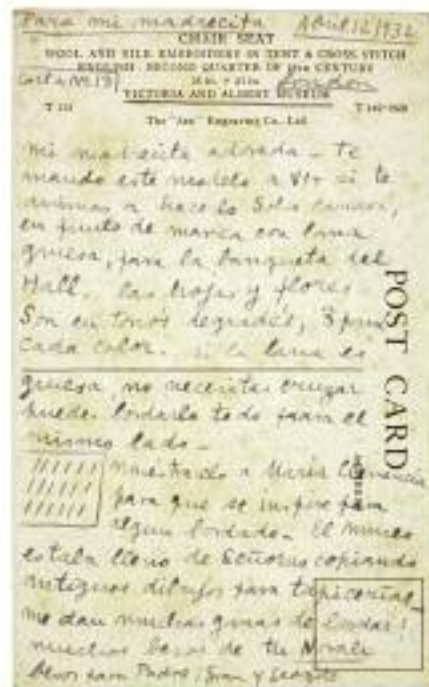 Para mi madrecita April 12/932
CHAIR SEAT
WOOL AND SILK EMBROIDERY IN TENT & CROSS STITCH
ENGLISH: SECOND QUARTER OF 18TH CENTURY
Carta No. 13) London
VICTORIA AND ALBERT MUSEUM
The "Ars" Engraving Co., Ltd.
mi madrecita adorada - Te
mando este modelo a ver si te
animas a hacerlo
en punto de marca con lana
gruesa, para la banqueta del
Hall. las hojas y flores
Son en tonos degradés, 3 para
cada color. Si la lana es
gruesa, no necesitas cruzar
puedes bordarlo todo para el
mismo lado -
muéstraselo a María Clemencia
para que se inspire para
algun bordado. El museo
estaba lleno de Señoras copiando
antiguos dibujos para tapicerías -
me dan muchas ganas de bordar!
muchos besos de tu Norah
Besos para Padre,
POST CARD